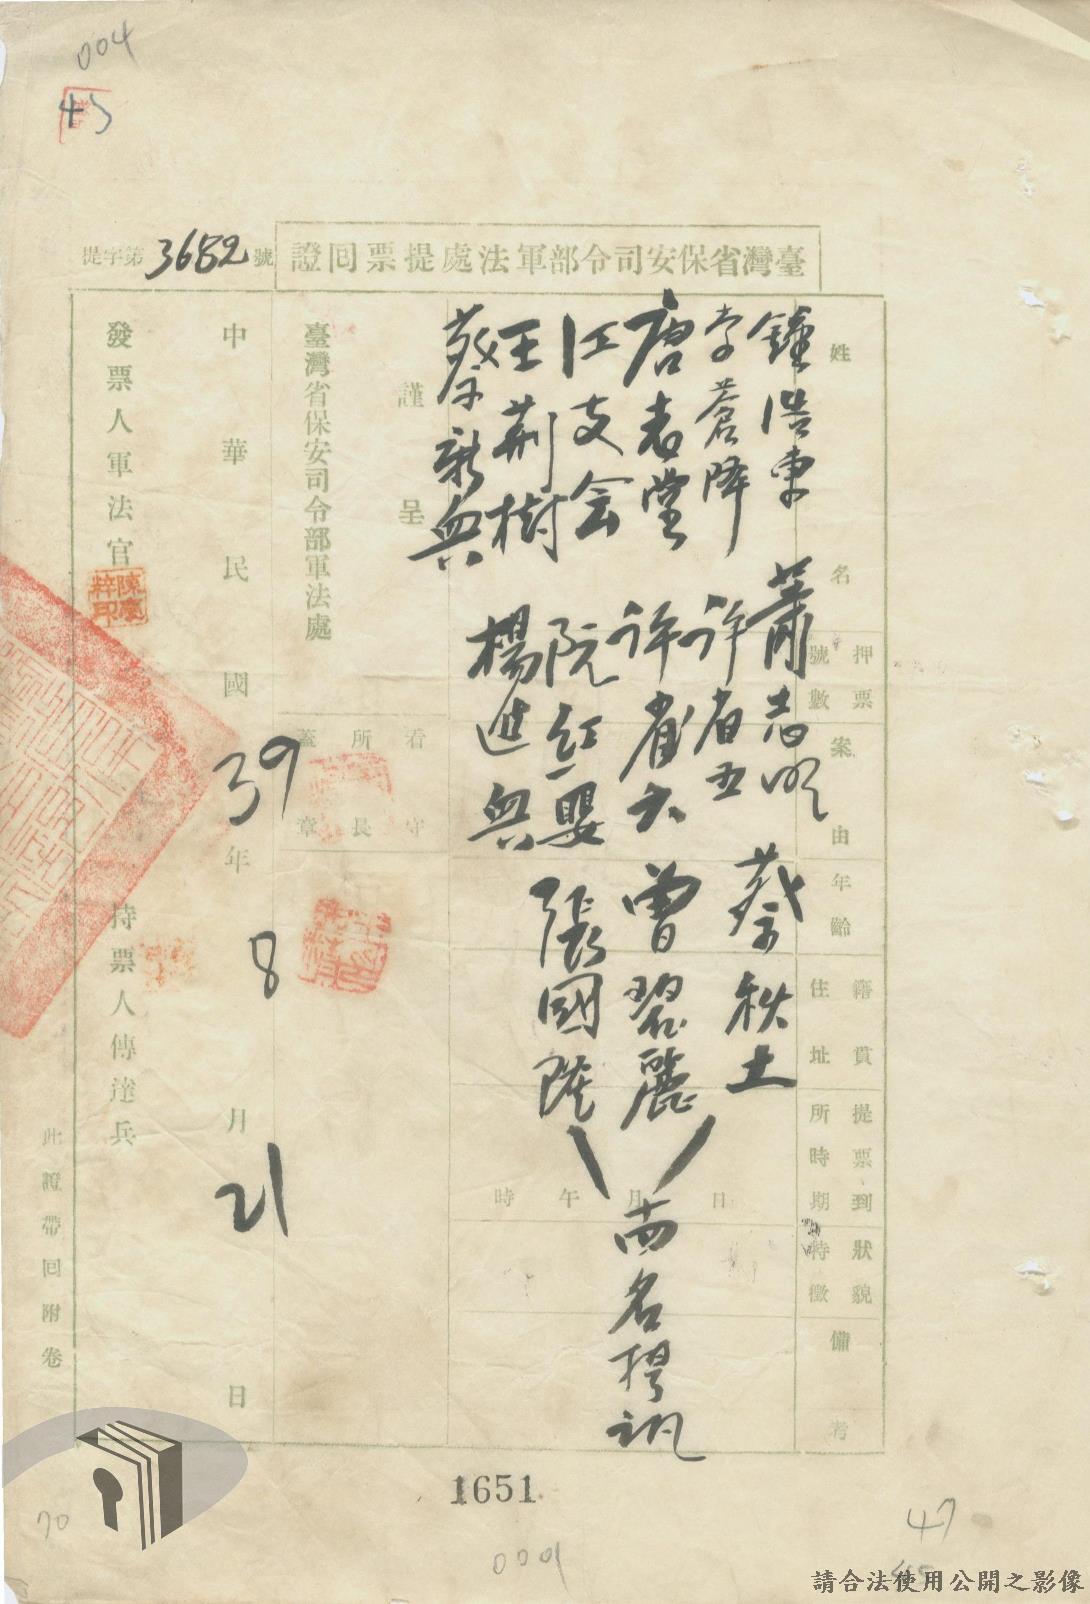 004
45
臺灣省保安司令部軍法處提票回證
提字第3682號
姓名
押票號數
案由
年齡
籍貫住址
提票到所時期
狀貌特徵
備考
鍾浩東 蕭志明 蔡秋土
李蒼降 許省五
唐志堂 許省六 曾碧麗
江支会 阮紅嬰 張國隆
王荊樹 楊進興
蔡新興
兩名提訊
日 月 午 時
謹呈
臺灣省保安司令部軍法處
看守所長蓋章
中華民國39年8月21日
發票人軍法官
持票人傳達兵
此證帶回附卷
1651
70
0001
47
45
請合法使用公開之影像